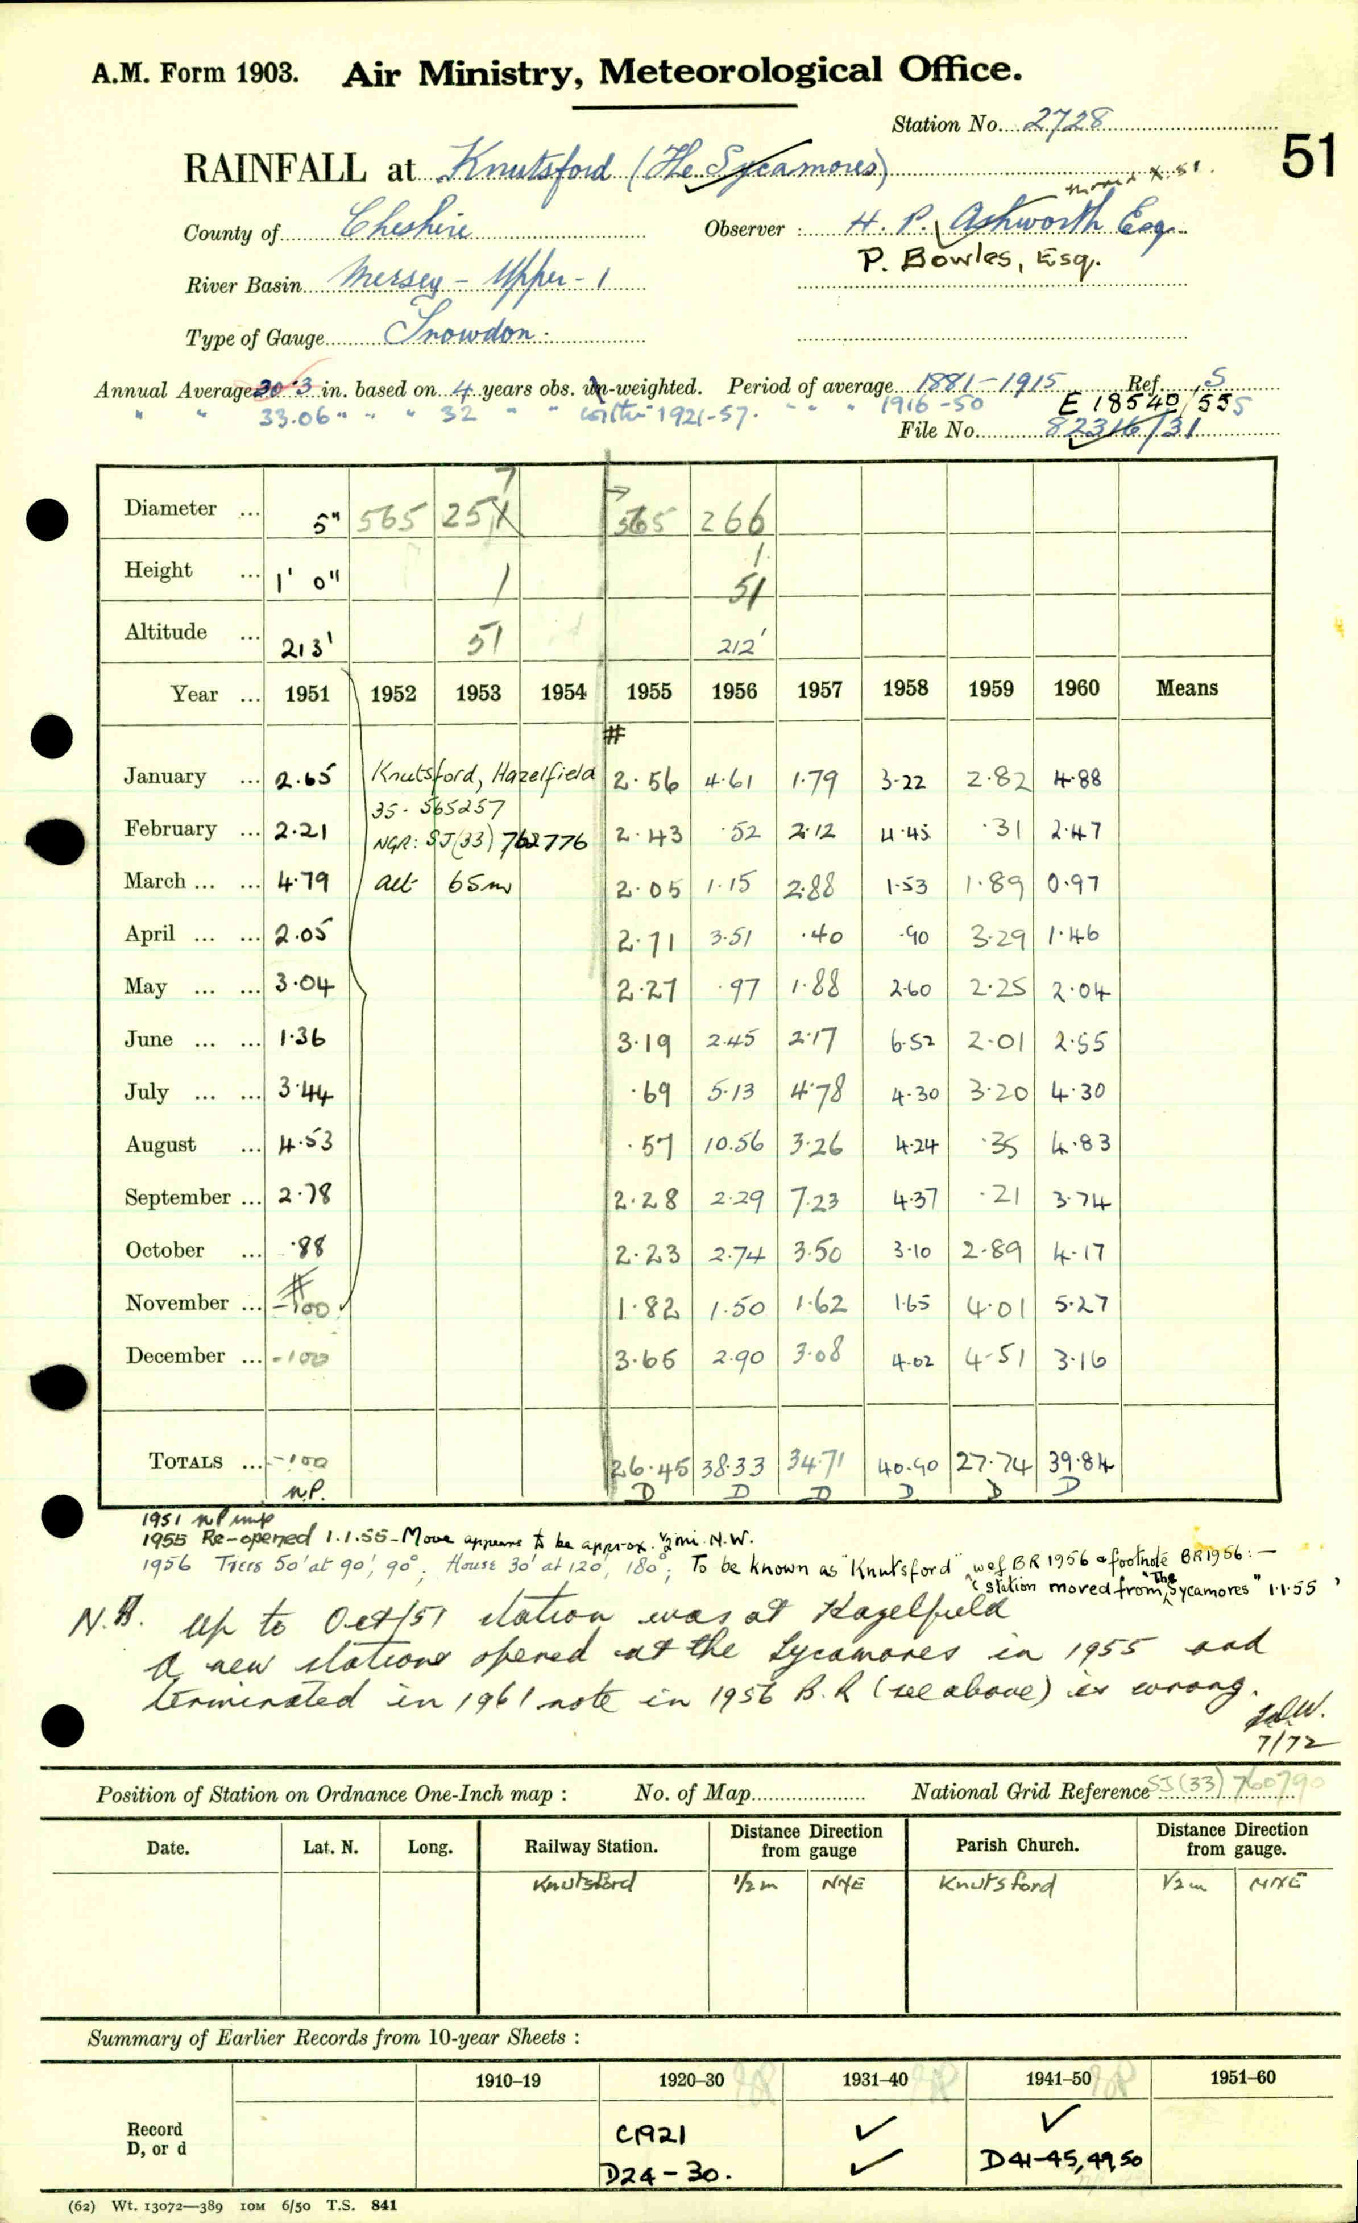 A.M. Form 1903. Air Ministry, Meteorological Office.
Station No. 2728
51
RAINFALL at Knutsford (The Sycamores)
moved X.51.
County of Cheshire Observer : H. P. Ashworth Esq.
P. Bowles, Esq.
River Basin Mersey - Upper - 1
Type of Gauge Snowdon.
Annual Average 30.3 in. based on 4 years obs. un-weighted. Period of average 1881-1915 Ref. S
" " 33.06 " " " 32 " " 1921-57. " " " 1916-50 E 18540/55
File No. 82316/31
Diameter ... 5" 565 251 7 565 266
Height ... 1' 0" 1 1 51
Altitude ... 213' 51 212'
Year ... 1951 1952 1953 1954 1955 1956 1957 1958 1959 1960 Means
#
January ... 2.65 Knutsford, Hazelfield 2.56 4.61 1.79 3.22 2.82 4.88
35-565257
February ... 2.21 NGR: SJ(33) 762776 2.43 .52 2.12 4.45 .31 2.47
March ... ... 4.79 alt 65m 2.05 1.15 2.88 1.53 1.89 0.97
April ... ... 2.05 2.71 3.51 .40 .90 3.29 1.46
May ... ... 3.04 2.27 .97 1.88 2.60 2.25 2.04
June ... ... 1.36 3.19 2.45 2.17 6.52 2.01 2.55
July ... ... 3.44 .69 5.13 4.78 4.30 3.20 4.30
August ... 4.53 .57 10.56 3.26 4.24 .35 4.83
September ... 2.78 2.28 2.29 7.23 4.37 .21 3.74
October ... .88 2.23 2.74 3.50 3.10 2.89 4.17
#
November ... -100 1.82 1.50 1.62 1.65 4.01 5.27
December ... -100 3.65 2.90 3.08 4.02 4.51 3.16
TOTALS ... -100 26.45 38.33 34.71 40.90 27.74 39.84
n.P. D D D D D D
1951 nP
1955 Re-opened 1.1.55 - Move appears to be approx. ½ mi. N.W.
1956 Trees 50' at 90', 90°; House 30' at 120', 180°; To be known as "Knutsford" wef BR 1956 & footnote BR1956:-
"station moved from "The Sycamores" 1.1.55
N.B. Up to Oct/51 station was at Hazelfield
A new station opened at the Sycamores in 1955 and
terminated in 1961 note in 1956 B.R (see above) is wrong.
7/72
Position of Station on Ordnance One-Inch map : No. of Map National Grid Reference SJ(33) 760790
Date. Lat. N. Long. Railway Station. Distance Direction from gauge Parish Church. Distance Direction from gauge.
Knutsford 1/2 m NNE Knutsford 1/2 m NNE
Summary of Earlier Records from 10-year Sheets :
1910–19 1920–30 1931–40 1941–50 1951–60
Record
D, or d
C1921
D24-30. D41-45,49,50
(62) Wt. 13072—389 10M 6/50 T.S. 841